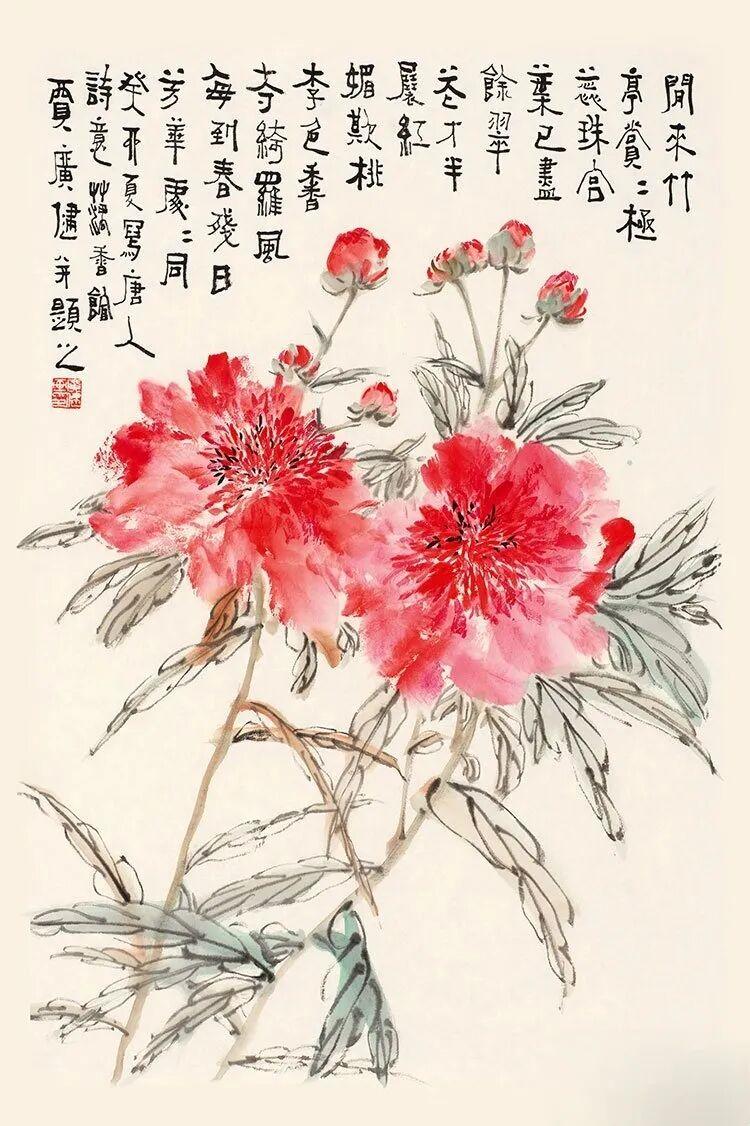 閒來竹
亭賞〻極
蕊珠宮
葉已盡
餘翠
花才半
展紅
媚欺桃
李色香
奪綺羅風
每到春殘日
芳華處〻同
癸卯夏寫唐人
詩意香館
賈廣健并題之